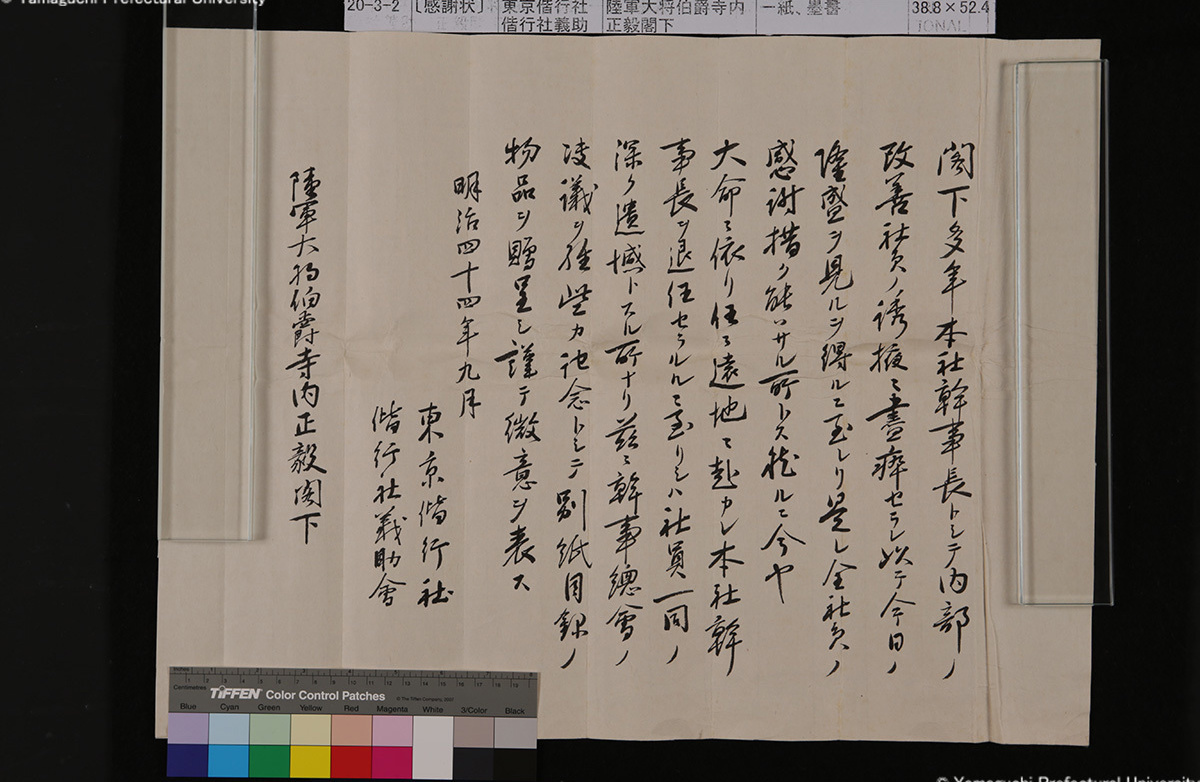 © Yamaguchi Prefectural University
20-3-2 〔感謝状〕 東京偕行社 偕行社義助 陸軍大将伯爵寺内正毅閣下 一紙、墨書 38.8×52.4
閣下多年本社幹事長トシテ内部ノ
改善社員ノ誘掖ニ盡瘁セラレ以テ今日ノ
隆盛ヲ見ルヲ得ルニ至レリ是レ全社員ノ
感謝措ク能ハサル所トス然ルニ今ヤ
大命ニ依リ任ヲ遠地ニ赴カレ本社幹
事長ヲ退任セラルルニ至リシハ社員一同ノ
深ク遺憾トスル所ナリ茲ニ幹事總會ノ
決議ヲ經些カ記念トシテ別紙目錄ノ
物品ヲ贈呈シ謹テ微意ヲ表ス
明治四十四年九月
東京偕行社
偕行社義助會
陸軍大將伯爵寺内正毅閣下
Inches
Centimetres
TIFFEN Color Control Patches
© The Tiffen Company, 2007
Blue Cyan Green Yellow Red Magenta White 3/Color Black
© Yamaguchi Prefectural University